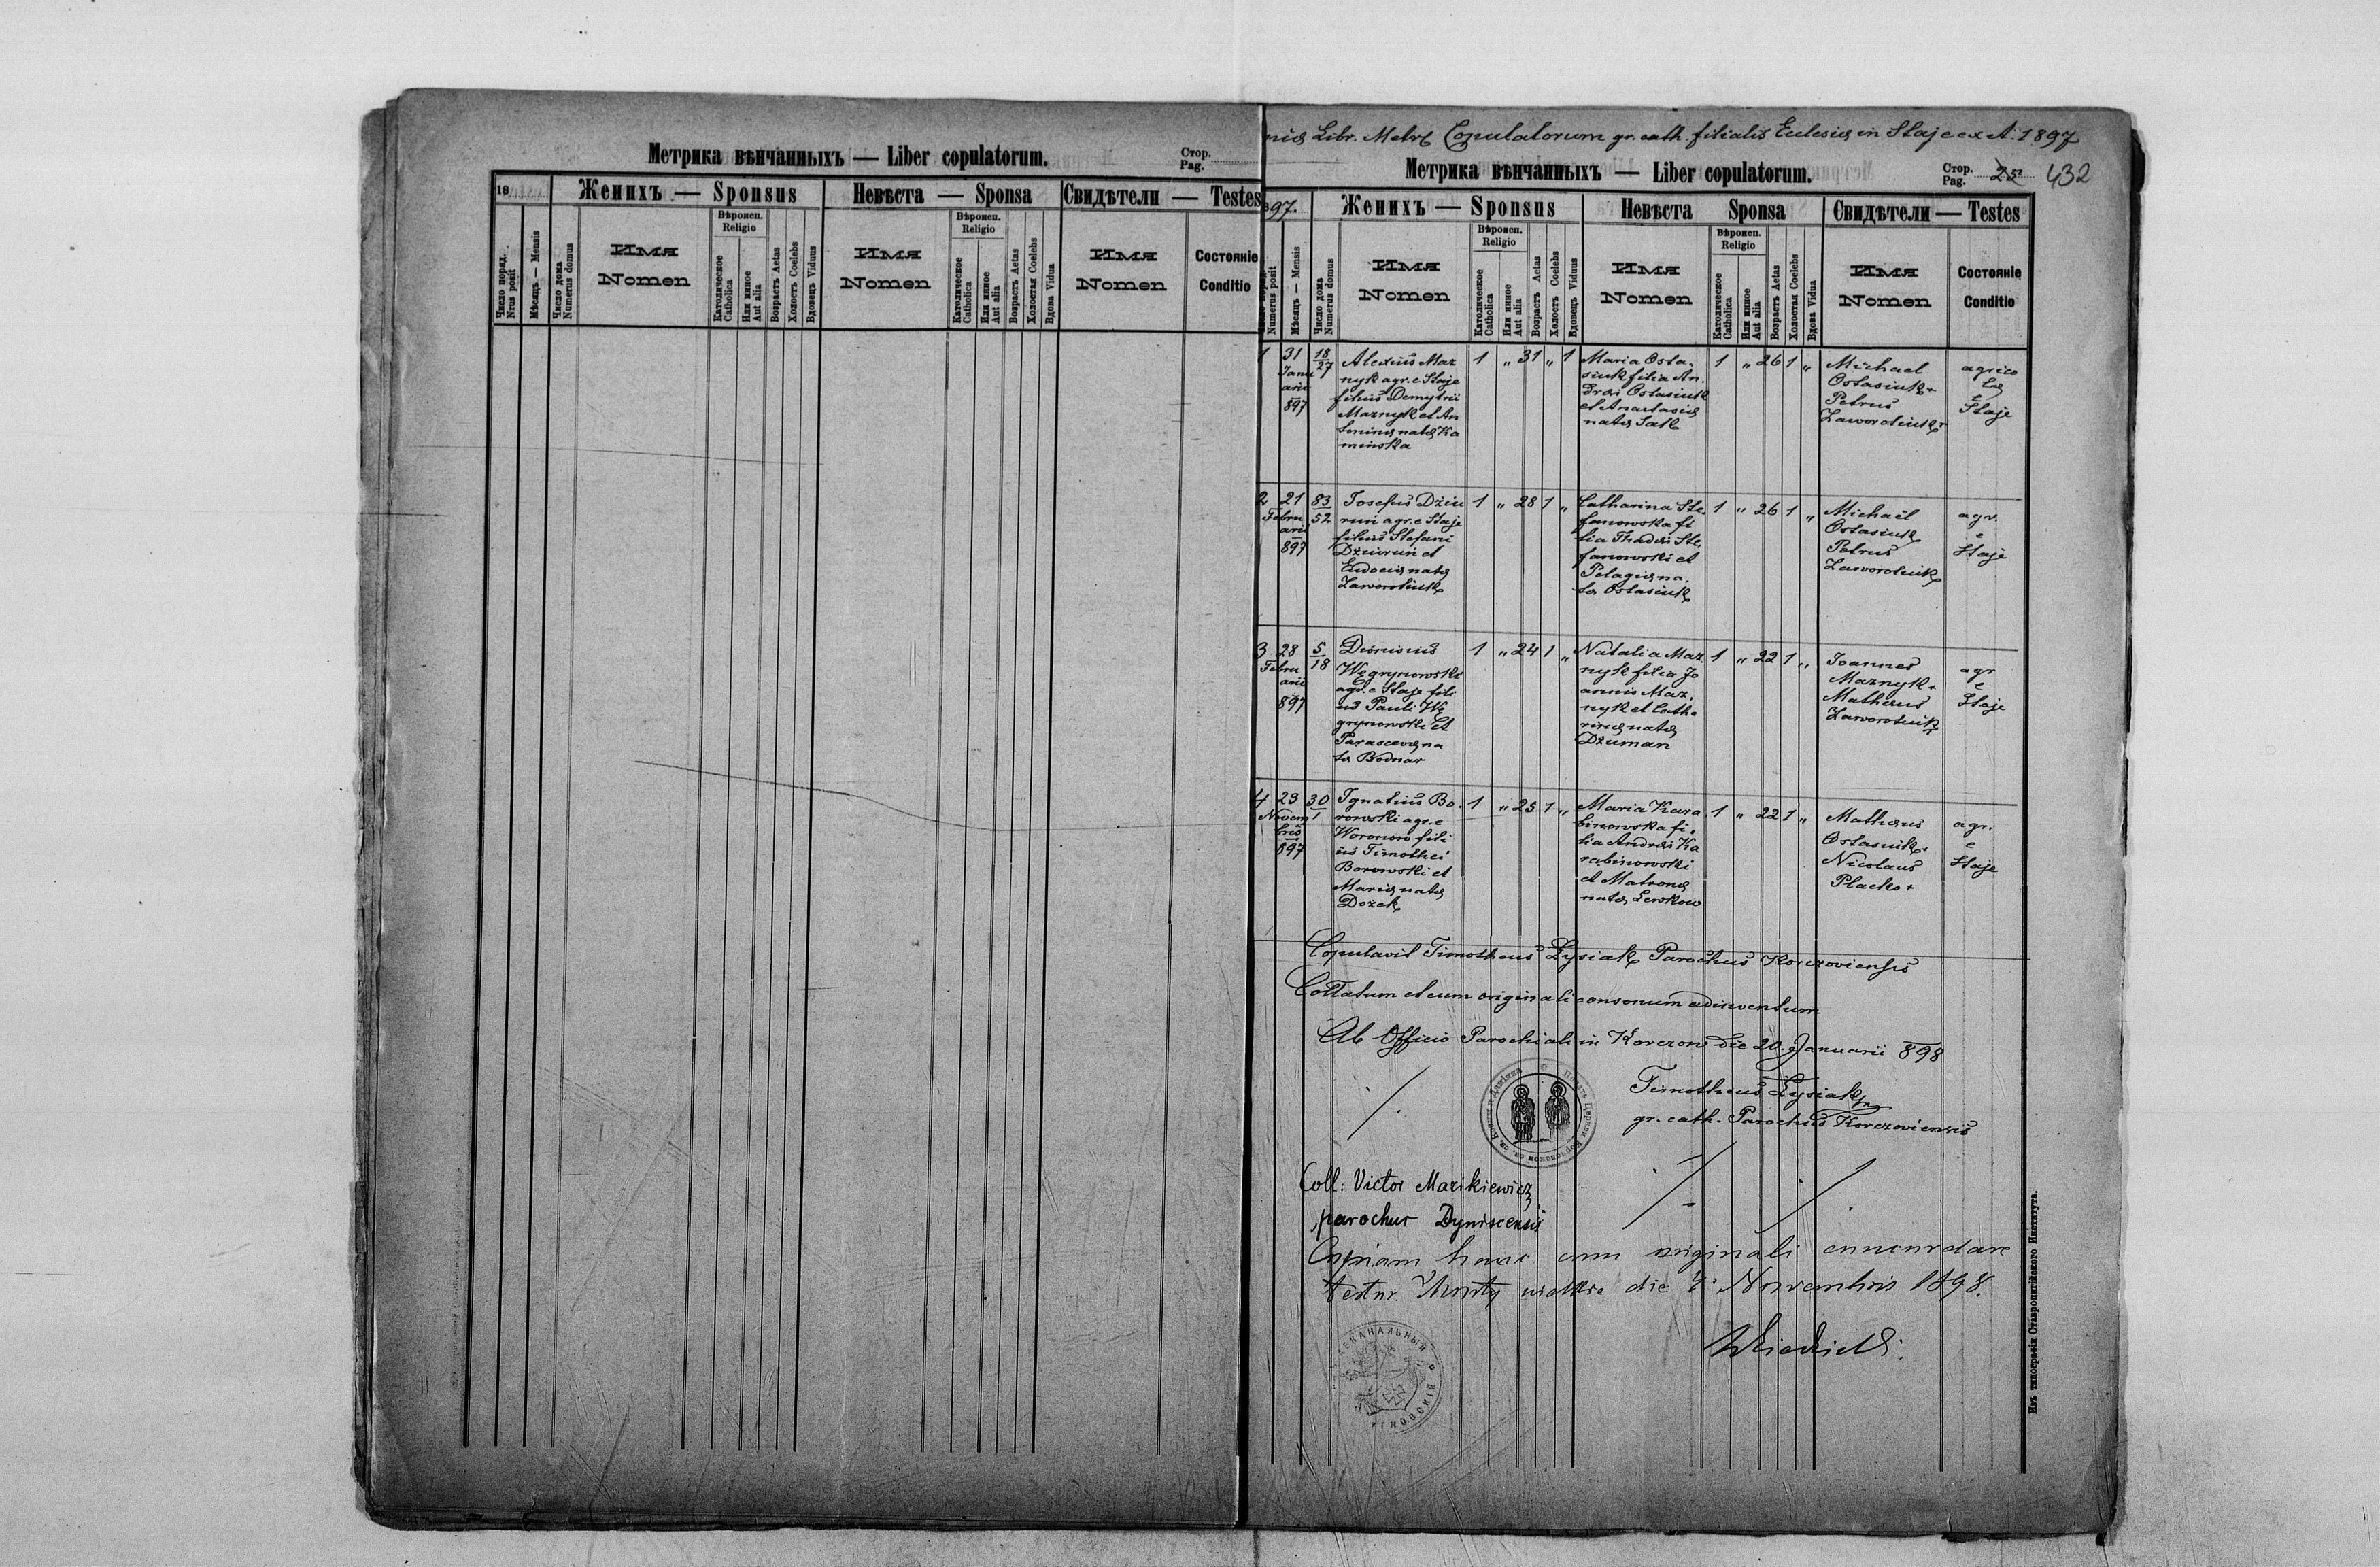 Метрика вѣнчанныхъ — Liber copulatorum.
Стор.
Pag.
18
Женихъ — Sponsus
Невѣста — Sponsa
Свидѣтели — Testes
Число поряд.
Nrus posit
Мѣсяцъ. — Mensis
Число дома
Numerus domus
Имя
Nomen
Вѣроисп.
Religio
Католическое
Catholica
Или иное
Aut alia
Возрастъ Aetas
Холостъ Coelebs
Вдовецъ Viduus
Имя
Nomen
Вѣроисп.
Religio
Католическое
Catholica
Или иное
Aut alia
Возрастъ Aetas
Холостая Coelebs
Вдова Vidua
Имя
Nomen
Состояніе
Conditio
Libr. Metr. Copulatorum gr. cath. filialis Ecclesiæ in Staje ex A. 1897
Метрика вѣнчанныхъ — Liber copulatorum.
Стор.
Pag. 25 432
97.
Женихъ — Sponsus
Невѣста Sponsa
Свидѣтели — Testes
Numerus posit
Мѣсяцъ — Mensis
Число дома
Numerus domus
Имя
Nomen
Вѣроисп.
Religio
Католическое
Catholica
Или иное
Aut alia
Возрастъ Aetas
Холостъ Coelebs
Вдовецъ Viduus
Имя
Nomen
Вѣроисп.
Religio
Католическое
Catholica
Или иное
Aut alia
Возрастъ Aetas
Холостая Coelebs
Вдова Vidua
Имя
Nomen
Состояніе
Conditio
1
31
Janu
arii
897
18
27
Alexius Maz
nyk agr. e Staje
filius Demytrii
Maznyk et An
natæ Ka
minska
1 " 31 " 1
Maria Osta-
siuk filia An-
dreæ Ostasiuk
et Anastasiæ
natæ Sak
1 " 26 1 "
Michael
Ostasiuk +
Petrus
Zaworotiuk +
agrico
læ
e
Staje
2
21
Febru
arii
897
83
52
Josefus Dziu
run agr. e Staje
filius Stefani
Dziurun et
Eudociæ natæ
Zaworotiuk
1 " 28 1 "
Catharina Ste-
fanowska fi
lia Thadæi Ste-
fanowski et
Pelagiæ na-
tæ Ostasiuk
1 " 26 1 "
Michael
Ostasiuk
Petrus
Zaworotiuk
agr.
e
Staje
3
28
Febru
arii
897
5
18
Dionisius
Węgrynowski
agr. e Staje fili
us Pauli Wę
grynowski et
Parascevæ na
tæ Bodnar
1 " 24 1 "
Natalia Maz
nyk filia Jo
annis Maz-
nyk et Catha
rinæ natæ
Dziuman
1 " 22 1 "
Joannes
Maznyk +
Mathæus
Zaworotiuk
agr
e
Staje
4
23
Novem
bris
897
30
1
Ignatius Bo-
rowski agr. e
Woronow fili
us Timothei
Borowski et
Mariæ natæ
Dozak
1 " 25 1 "
Maria Kara
binowska fi-
lia Andreæ Ka
rabinowski
et Matronæ
natæ Lewkow
1 " 22 1 "
Mathæus
Ostasiuk +
Nicolaus
Placko +
agr.
e
Staje
Copulavit Timotheus Łysiak Parochus Korczoviensis
Collatum et cum originali consonum adinventum
Ab Officio Parochiali in Korczow die 20. Januarii 898
Timotheus Łysiak
gr. cath. Parochus Korczoviensis
Coll: Victor Mazikiewicz
parochus Dyniscensis
Copiam hanc cum originali concordare
testor. die 4 Novembris 1898.
Изъ типографіи Ставропигійского Института.